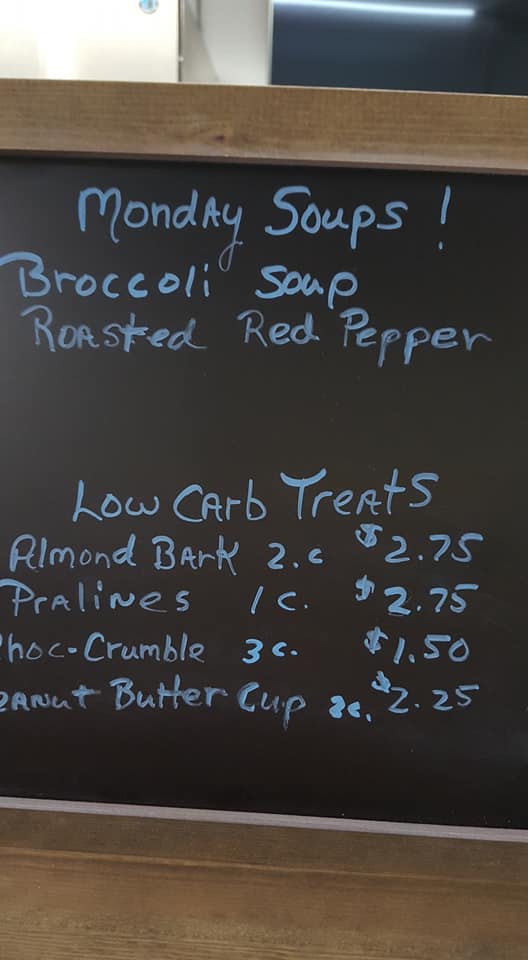 Monday Soups!
Broccoli Soup
Roasted Red Pepper
Low Carb Treats
Almond Bark 2.c $2.75
Pralines 1 c. $2.75
hoc-Crumble 3 c. $1.50
eanut Butter Cup 2c. $2.25